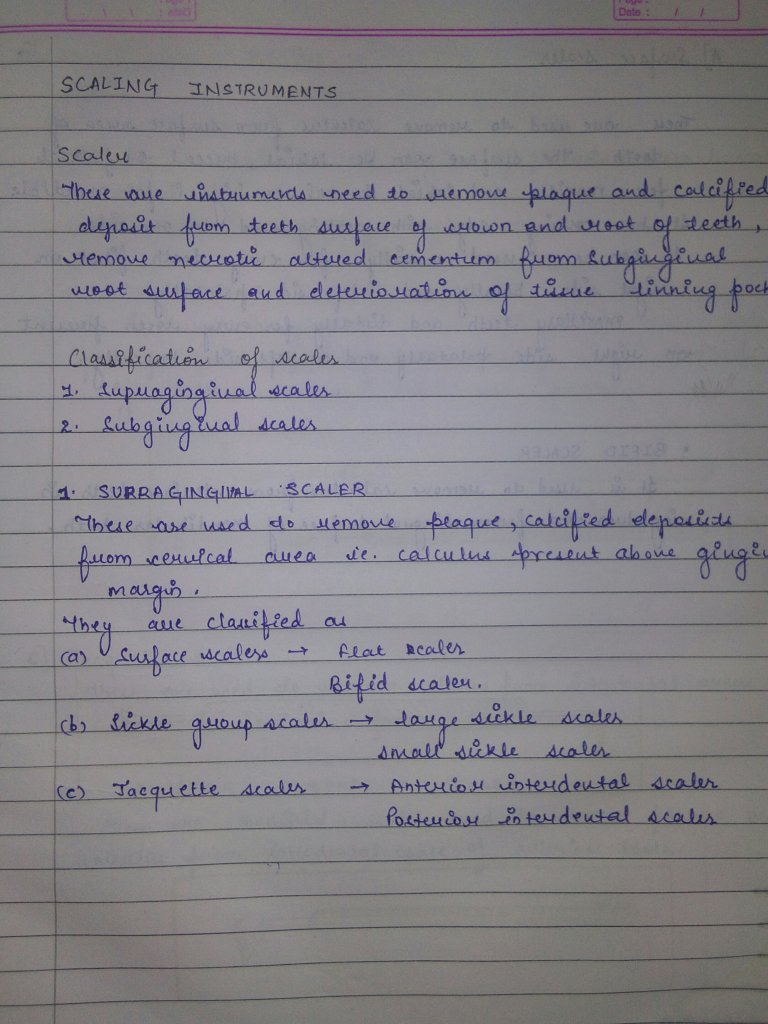 Date : / /
SCALING INSTRUMENTS
Scaler
These are instruments need to remove plaque and calcified
deposit from teeth surface of crown and root of teeth,
remove necrotic altered cementum from subginginal
root surface and deterioration of tissue linning pock
Classification of scalers
1. Supraginginal scalers
2. Subginginal scalers
1. SURRAGINGIVAL SCALER
These are used to remove plaque, calcified deposists
from cervical area i.e. calculus present above gingi
margin.
They are classified as
(a) Surface scalers → flat scaler
Bifid scaler.
(b) Sickle group scalers → large sickle scaler
small sickle scaler
(c) Jacquette scaler → Anterior interdental scaler
Posterior interdental scaler